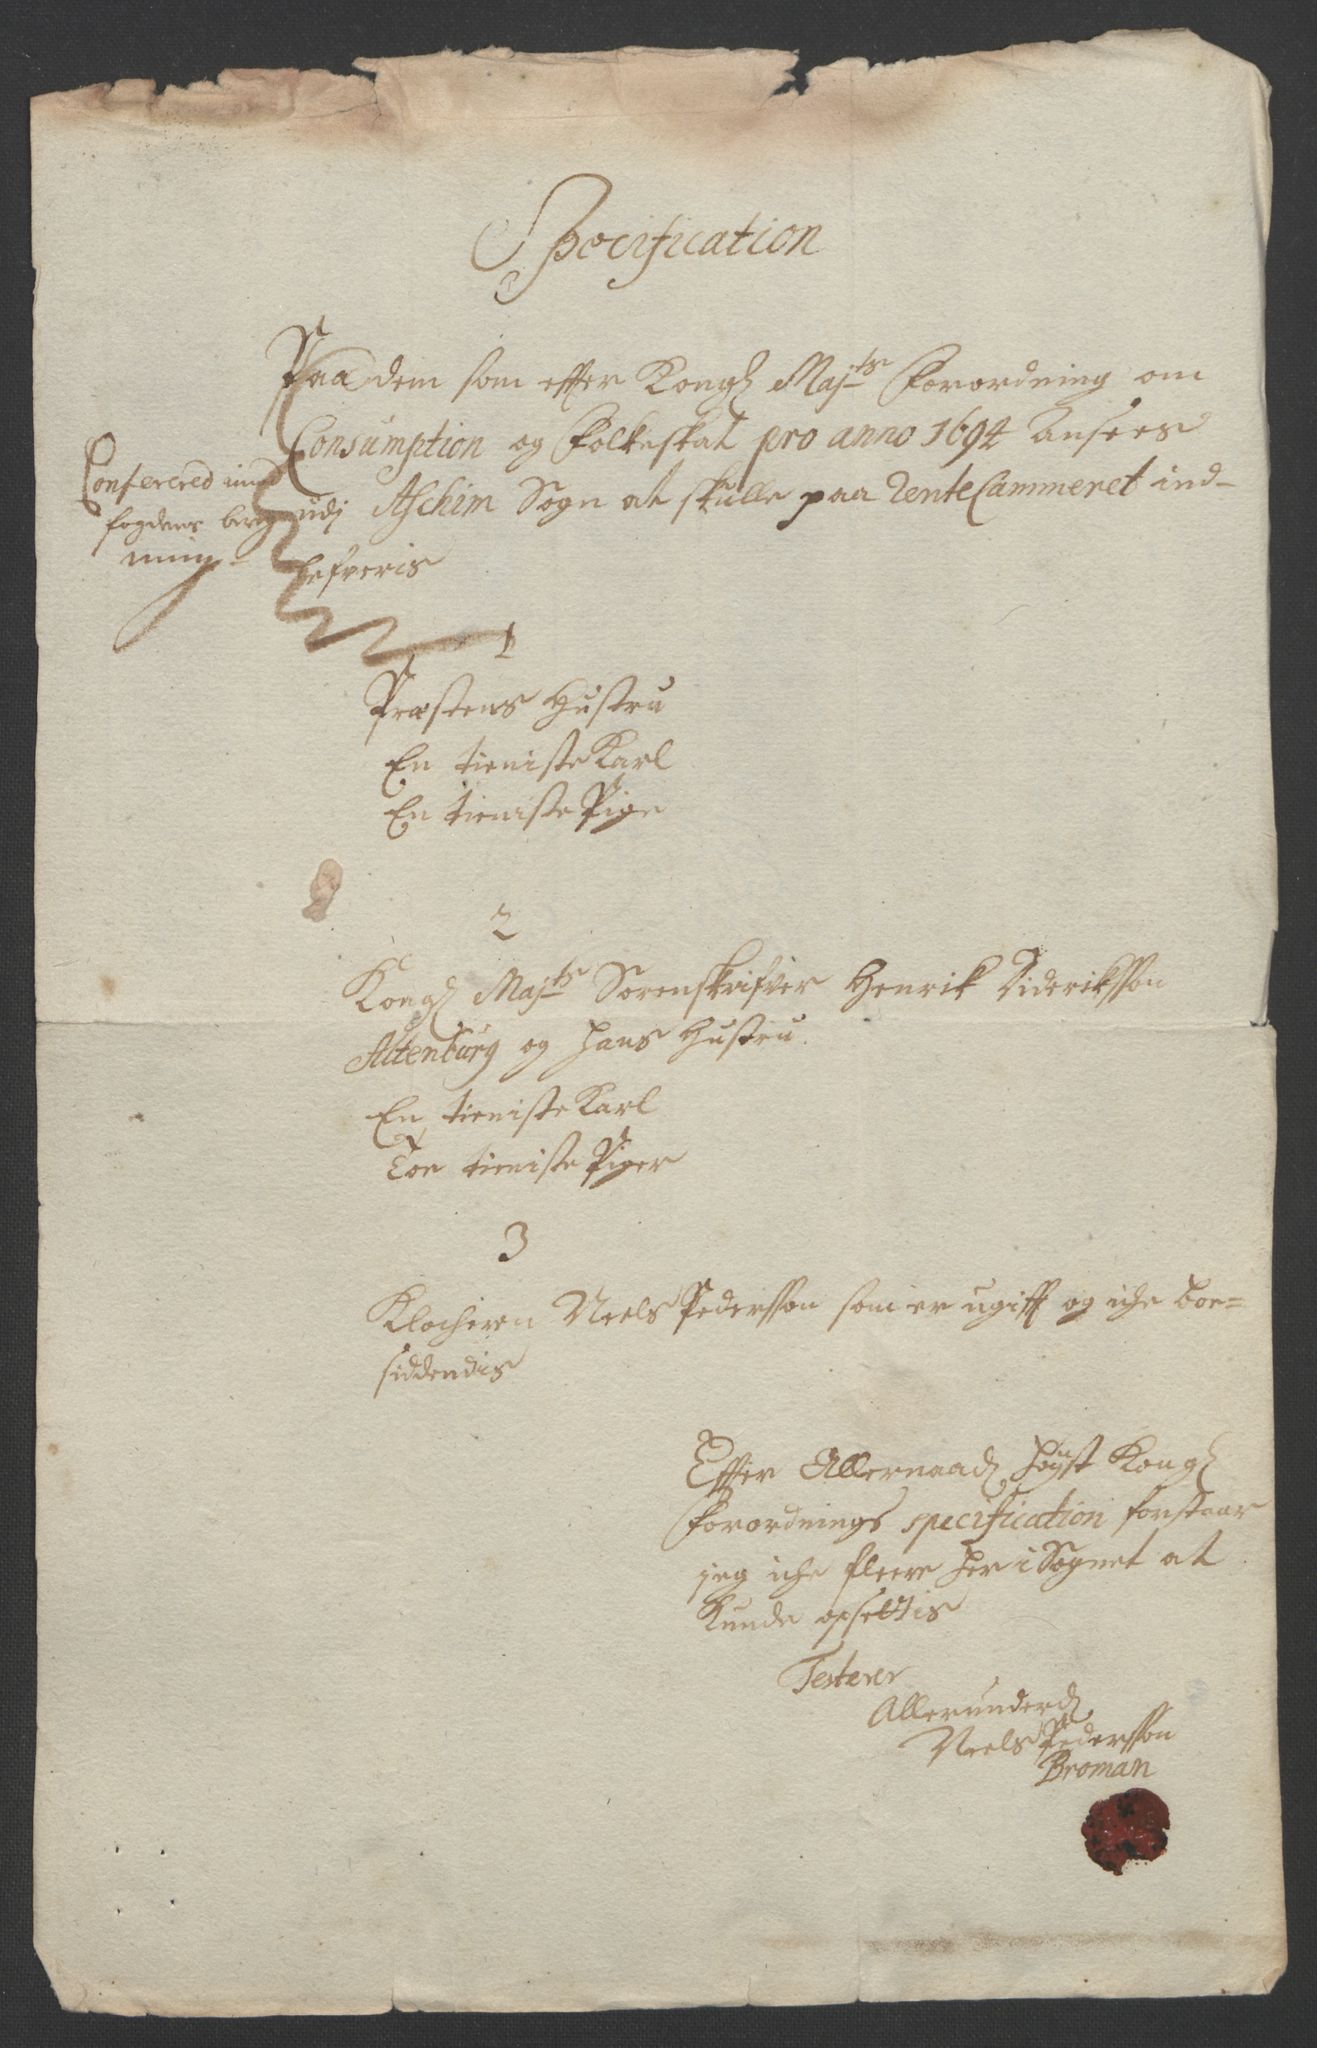 Specification
Paa dem som effter Kongl Majts Forordning om
Consumption og Folkeskat pro anno 1694 Ansees
udj Aschim Sogn at skulle paa RenteCammeret ind-
lefveris
Conferered imod
fogdens bereg
ning
1
Præstens Hustru
En tieniste Karl
En tieniste Pige
2
Kongl Majts Sorenskrifver Henrik Diderikssøn
Altenburg og hans Hustru.
En tieniste Karl
Toe tieniste Piger
3
Klocheren Neels Pederssøn som er ugifft og iche boe=
siddendis
Effter Allernaadl høyst Kongl
Forordnings specification forstaar
jeg iche fleere her i Sognet at
kunde opsettis
Testerer
Allerunderdl
Neels Pederssøn
Broman